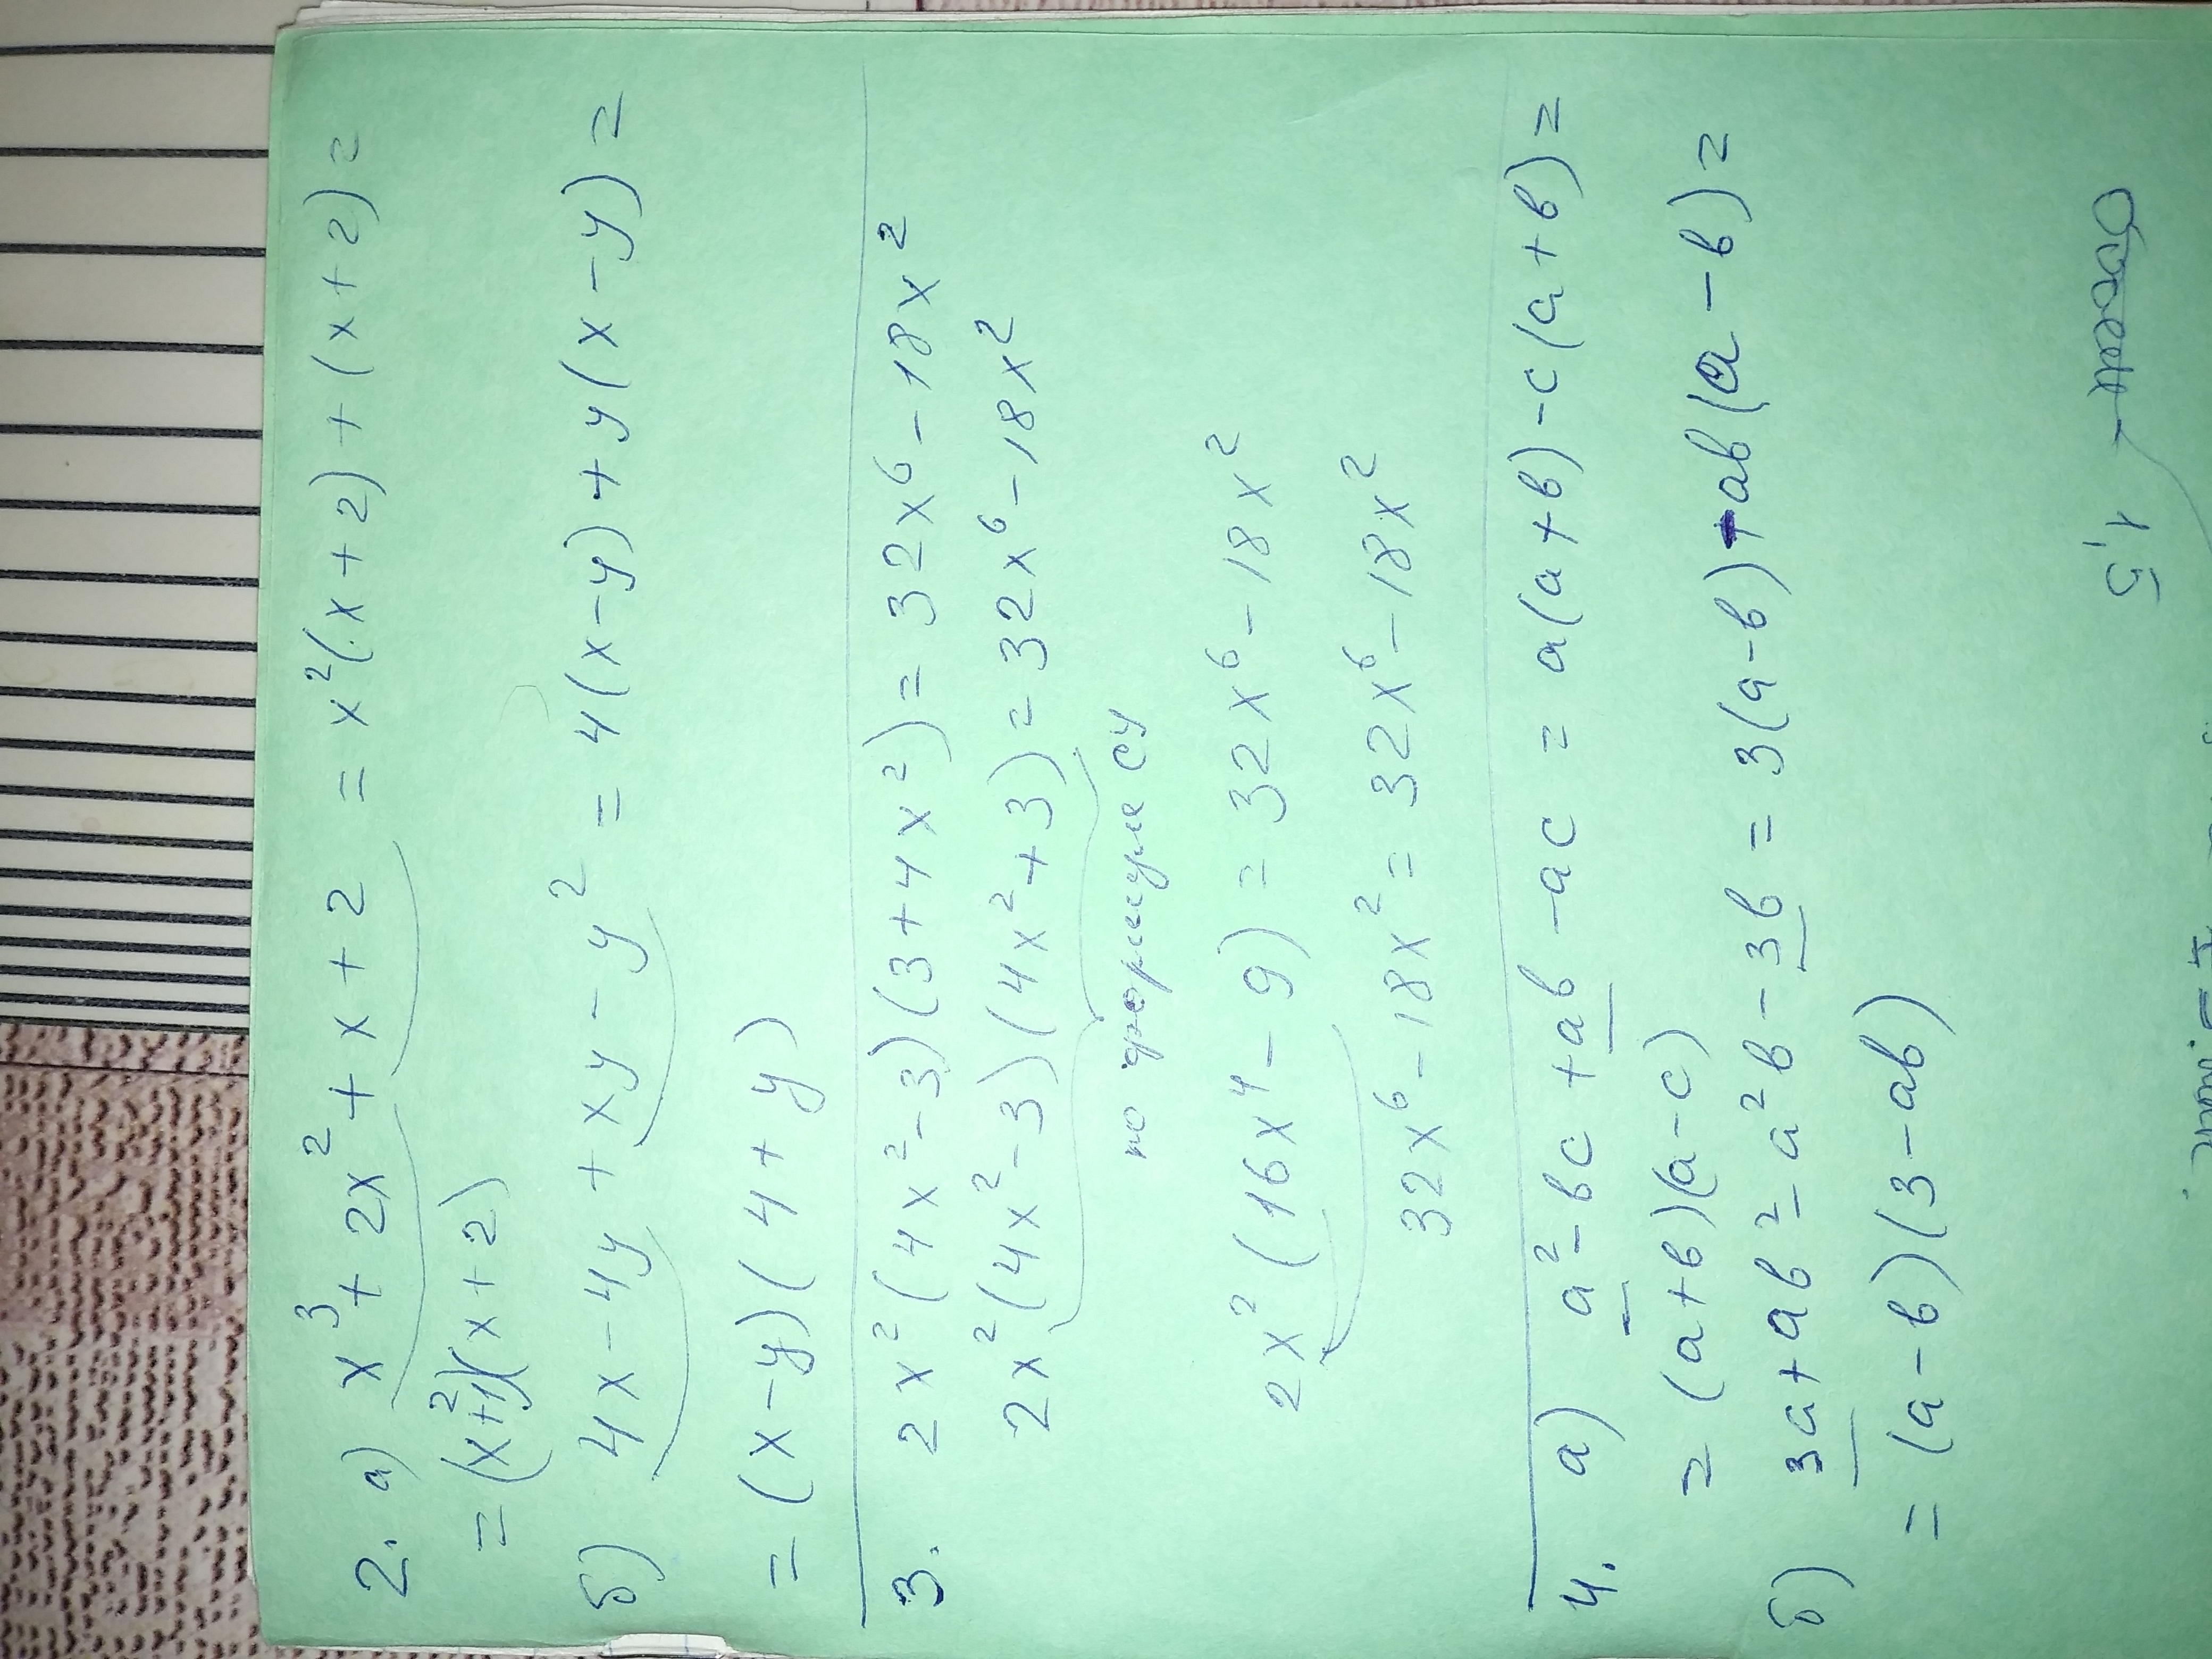 2. а) x³ + 2x² + x + 2 = x²(x + 2) + (x + 2) =
= (x²+1)(x + 2)
б) 4x - 4y + xy - y² = 4(x - y) + y(x - y) =
= (x - y)(4 + y)
3. 2x²(4x² - 3)(3 + 4x²) = 32x⁶ - 18x²
2x²(4x² - 3)(4x² + 3) = 32x⁶ - 18x²
по формуле СУ
2x²(16x⁴ - 9) = 32x⁶ - 18x²
32x⁶ - 18x² = 32x⁶ - 18x²
4. а) a² - bc + ab - ac = a(a + b) - c(a + b) =
= (a + b)(a - c)
б) 3a + ab² - a²b - 3b = 3(a - b) + ab(a - b) =
= (a - b)(3 - ab)
1,5